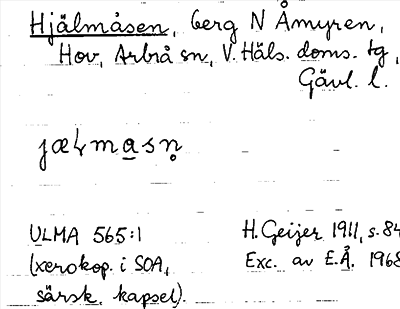 Hjälmåsen, berg N Åmyren,
Hov, Arbrå sn, V. Häls. doms. tg,
Gävl. l.
jæɽma̲sn̥
ULMA 565:1
H. Geijer 1911, s. 84
(xerokop. i SOA,
Exc. av E.Å. 1968
särsk. kapsel).